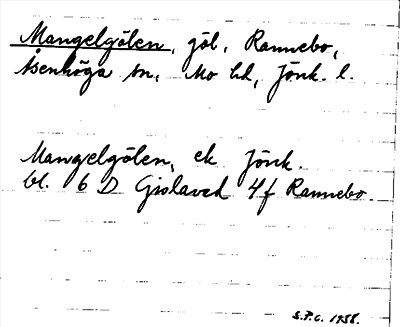 Mangelgölen, göl, Rannebo,
Åsenhöga sn, Mo hd, Jönk. l.
Mangelgölen, ek Jönk.
bl. 6 D Gislaved 4f Rannebo.
S.P.C. 1958.